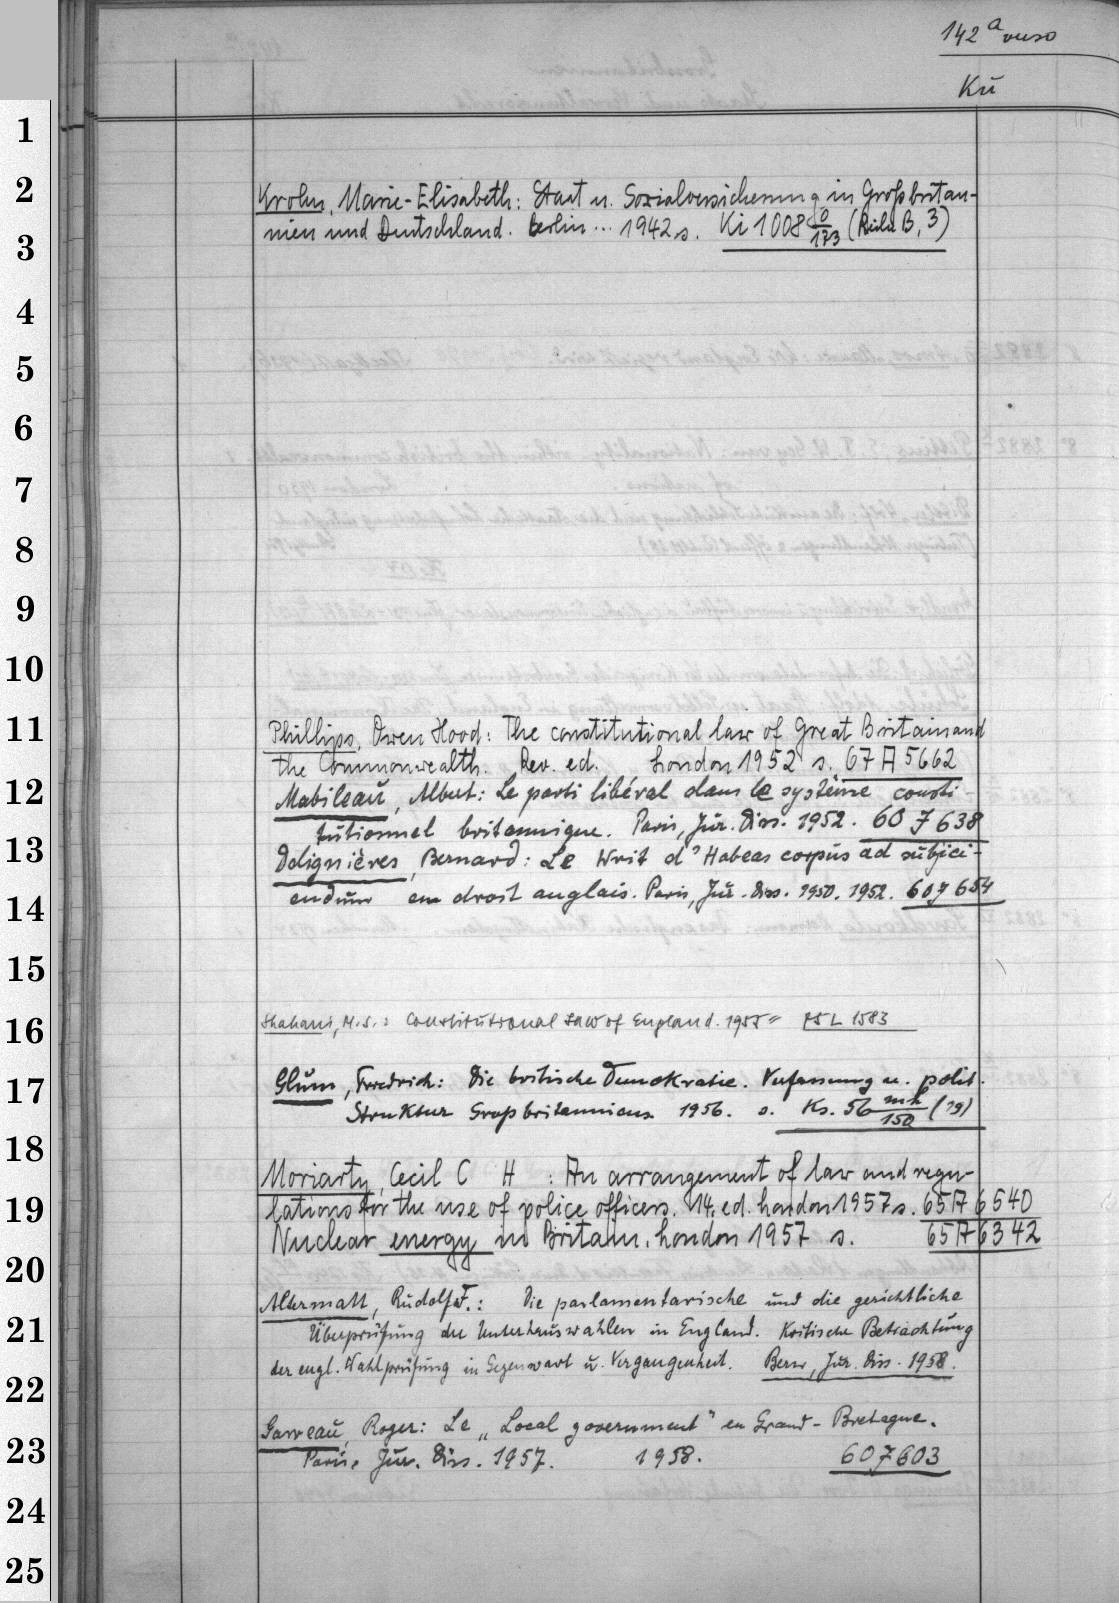 142 a verso
Kü
1
2
Krohn, Marie-Elisabeth: Staat u. Sozialversicherung in Großbritan-
nien und Deutschland. Berlin... 1942 s. Ki 1008 0/173 (Reihe B, 3)
3
4
5
6
7
8
9
10
11
Phillips, Owen Hood: The constitutional law of Great Britain and
the Commonwealth. Rev. ed. London 1952 s. 67 A 5662
12
Mabileau, Albert: Le parti libéral dans le système consti-
tutionnel britannique. Paris, Jur. Diss. 1952. 60 J 638
13
Dolignières, Bernard: Le Writ d'Habeas corpus ad subjici-
endum en droit anglais. Paris, Jur. Diss. 1950. 1952. 60 J 654
14
15
16
Shahani, M.S.: Constitutional Law of England. 1955 75 L 1583
17
Glum, Friedrich: Die britische Demokratie. Verfassung u. polit.
Struktur Grossbritanniens. 1956. s. Ks. 56 mh/150 (19)
18
Moriarty, Cecil C H : An arrangement of law and regu-
19
lations for the use of police officers. 14. ed. London 1957 s. 65 A 6540
Nuclear energy in Britain. London 1957 s. 65 A 6342
20
Altermatt, Rudolf F.: Die parlamentarische und die gerichtliche
21
Überprüfung der Unterhauswahlen in England. Kritische Betrachtung
der engl. Wahlprüfung in Gegenwart u. Vergangenheit. Bern, Jur. Diss. 1958.
22
Garreau, Roger: Le „Local government" en Grand-Bretagne.
23
Paris, Jur. Diss. 1957. 1958. 60 J 603
24
25